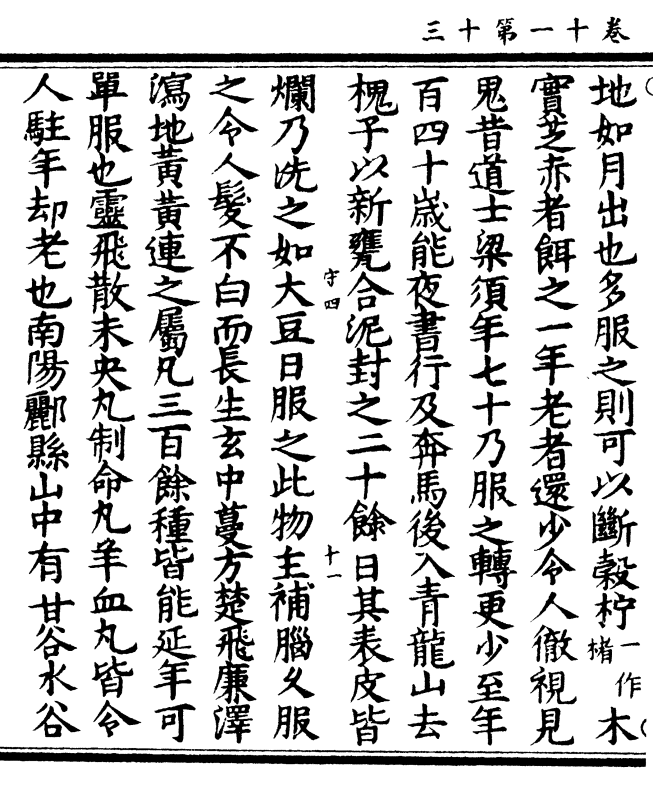 卷十一第十三
地如月出也多服之則可以斷穀柠一作楮木
實芝赤者餌之一年老者還少令人徹視見
鬼昔道士梁須年七十乃服之轉更少至年
百四十歲能夜書行及奔馬後入青龍山去
槐子以新甕合泥封之二十餘日其表皮皆
守四
十一
爛乃洗之如大豆日服之此物主補腦久服
之令人髮不白而長生玄中蔓方楚飛廉澤
瀉地黃黃連之屬凡三百餘種皆能延年可
單服也靈飛散未央丸制命丸羊血丸皆令
人駐年却老也南陽酈縣山中有甘谷水谷